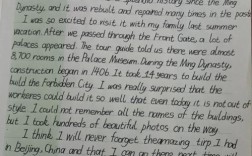 Dynasty, and it was rebuilt and repaired many times in the past
I was so excited to visit it with my family last summer
vacation. After we passed through the Front Gate, a lot of
palaces appeared. The tour guide told us there were almost
8,700 rooms in the Palace Museum. During the Ming Dynasty,
construction began in 1406. It took 14 years to build the
build the Forbidden City. I was really surprised that the
workers could build it so well that even today it is not out of
style. I could not remember all the names of the buildings,
but I took hundreds of beautiful photos on the way.
I think I will never foorget theamazing turp I had
in Beijing, China and that I can go there next time